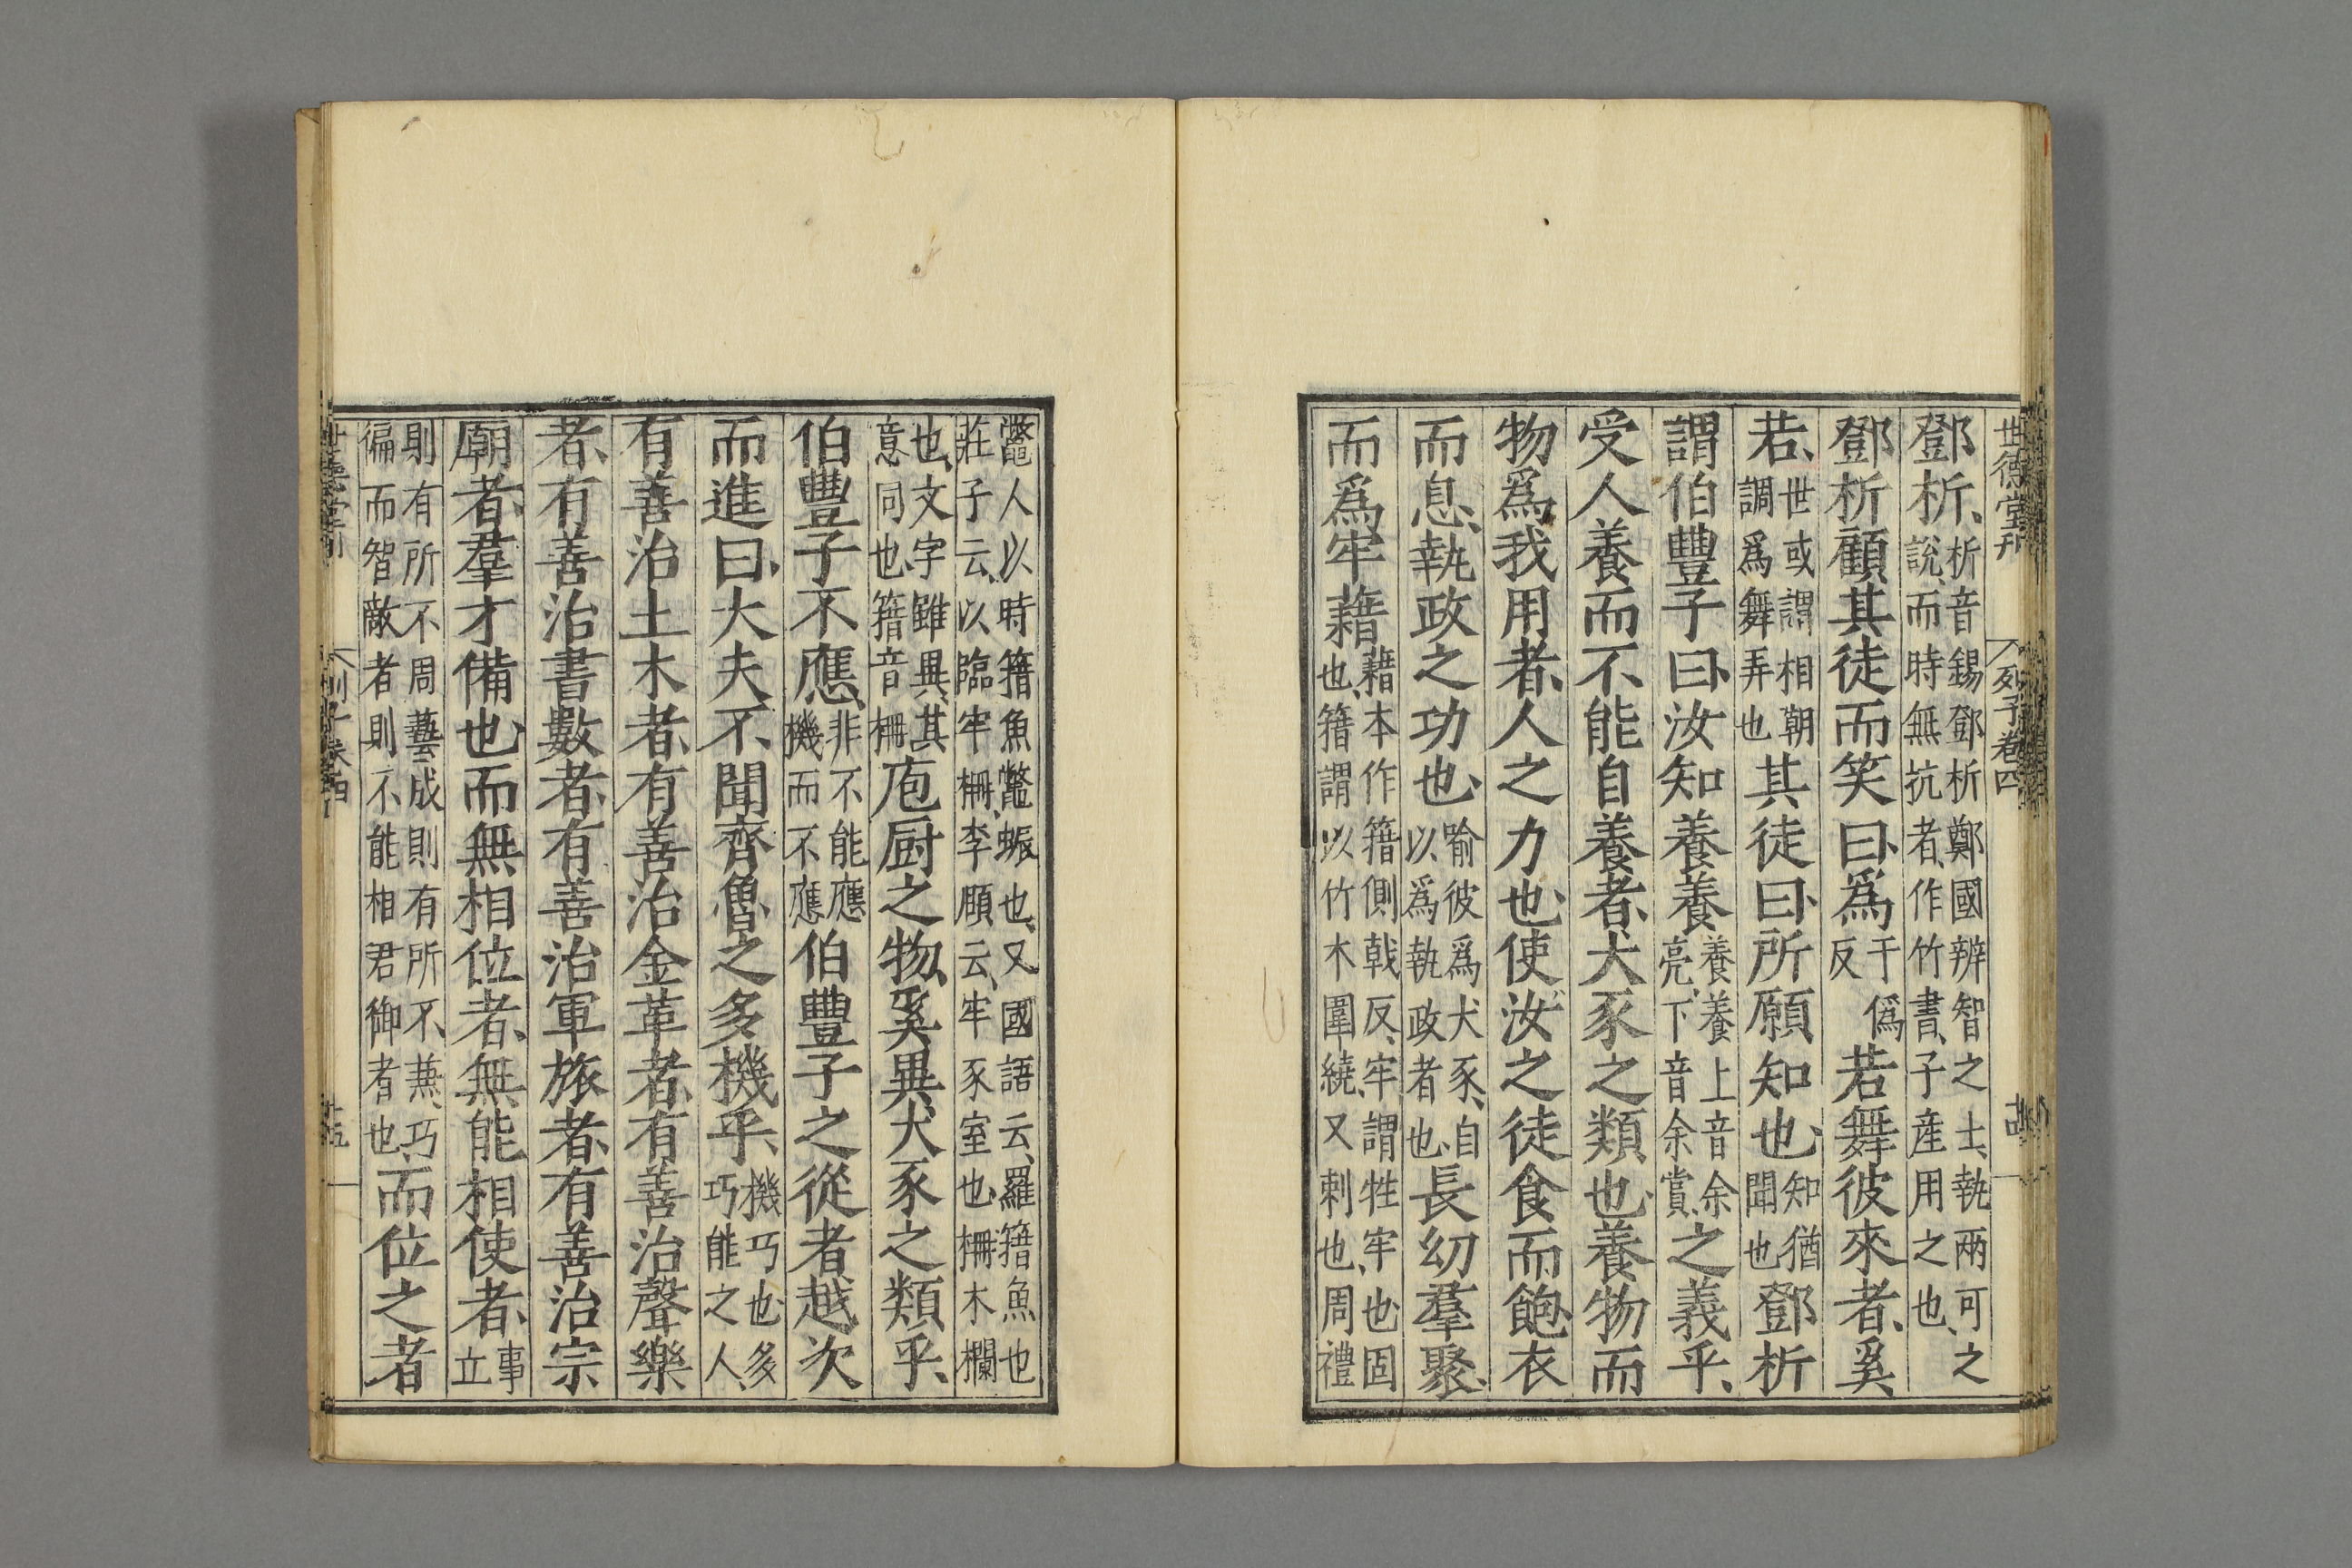 世德堂刊 列子卷四 十四
鄧析、析音錫鄧析鄭國辨智之士、執兩可之說、而時無抗者、作竹書、子產用之也、
鄧析顧其徒而笑曰、爲于僞反若舞彼來者、奚
若、世或謂相朝調爲舞弄也其徒曰、所願知也、知猶聞也鄧析
謂伯豐子曰、汝知養養養養上音余亮、下音余賞、之義乎、
受人養而不能自養者、犬豕之類也、養物而
物爲我用者、人之力也、使汝之徒食而飽、衣
而息、執政之功也、喻彼爲犬豕、自以爲執政者也、長幼羣聚、
而爲牢藉藉本作籍側戟反、牢、謂牲牢、也固也、籍謂以竹木圍繞、又刺也、周禮
鼈人以時籍魚鼈、蜃也、又國語云、羅籍魚也莊子云、以臨牢柵、李頤云、牢豕室也、柵木欄
也、文字雖異、其意同也、籍音柵庖厨之物、奚異犬豕之類乎、
伯豐子不應、非不能應機而不應伯豐子之從者越次
而進曰、大夫、不聞齊魯之多機乎、機巧也、多巧能之人、
有善治土木者、有善治金革者、有善治聲樂
者、有善治書數者、有善治軍旅者、有善治宗
廟者、羣才備也、而無相位者、無能相使者、事立
則有所不周藝成則有所不兼、巧、偏而智敵者則不能相君御者也、而位之者
世德堂刊 列子卷四 十五